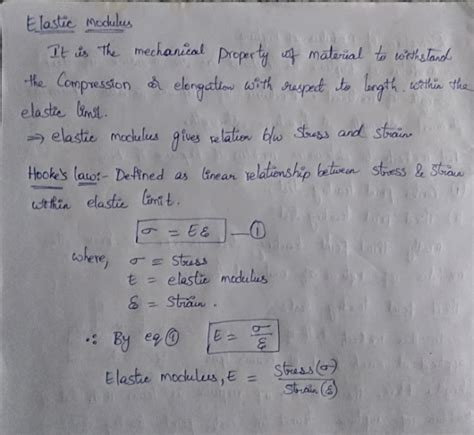 Elastic modulus
It is The mechanical property of material to withstand
the Compression & elongation with respect to length. within the
elastic limit.
⇒ elastic modulus gives relation b/w Stress and Strain
Hooke's law:- Defined as linear relationship between stress & strain
within elastic limit.
σ = Eε —①
where, σ = Stress
E = elastic modulus
ε = Strain.
∴ By eq ① E = σ/ε
Elastic modulus, E = Stress(σ)/Strain(ε)